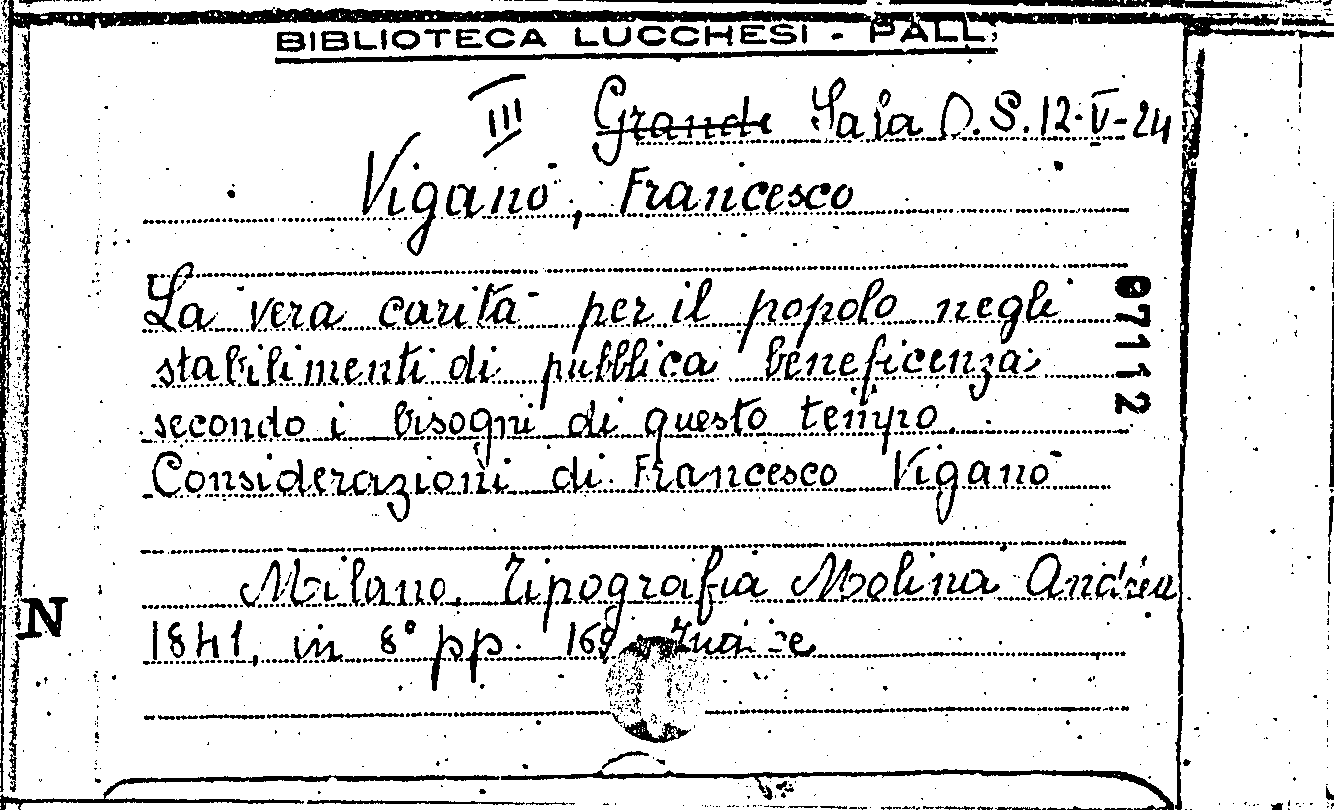 BIBLIOTECA LUCCHESI - PALL.
III Grande Sala D.S. 12-V-24
Viganò, Francesco
La vera carità per il popolo negli
stabilimenti di pubblica beneficenza
secondo i bisogni di questo tempo.
Considerazioni di Francesco Viganò
07112
Milano, Tipografia Molina Andrea
N
1841, in 8° pp. Indice